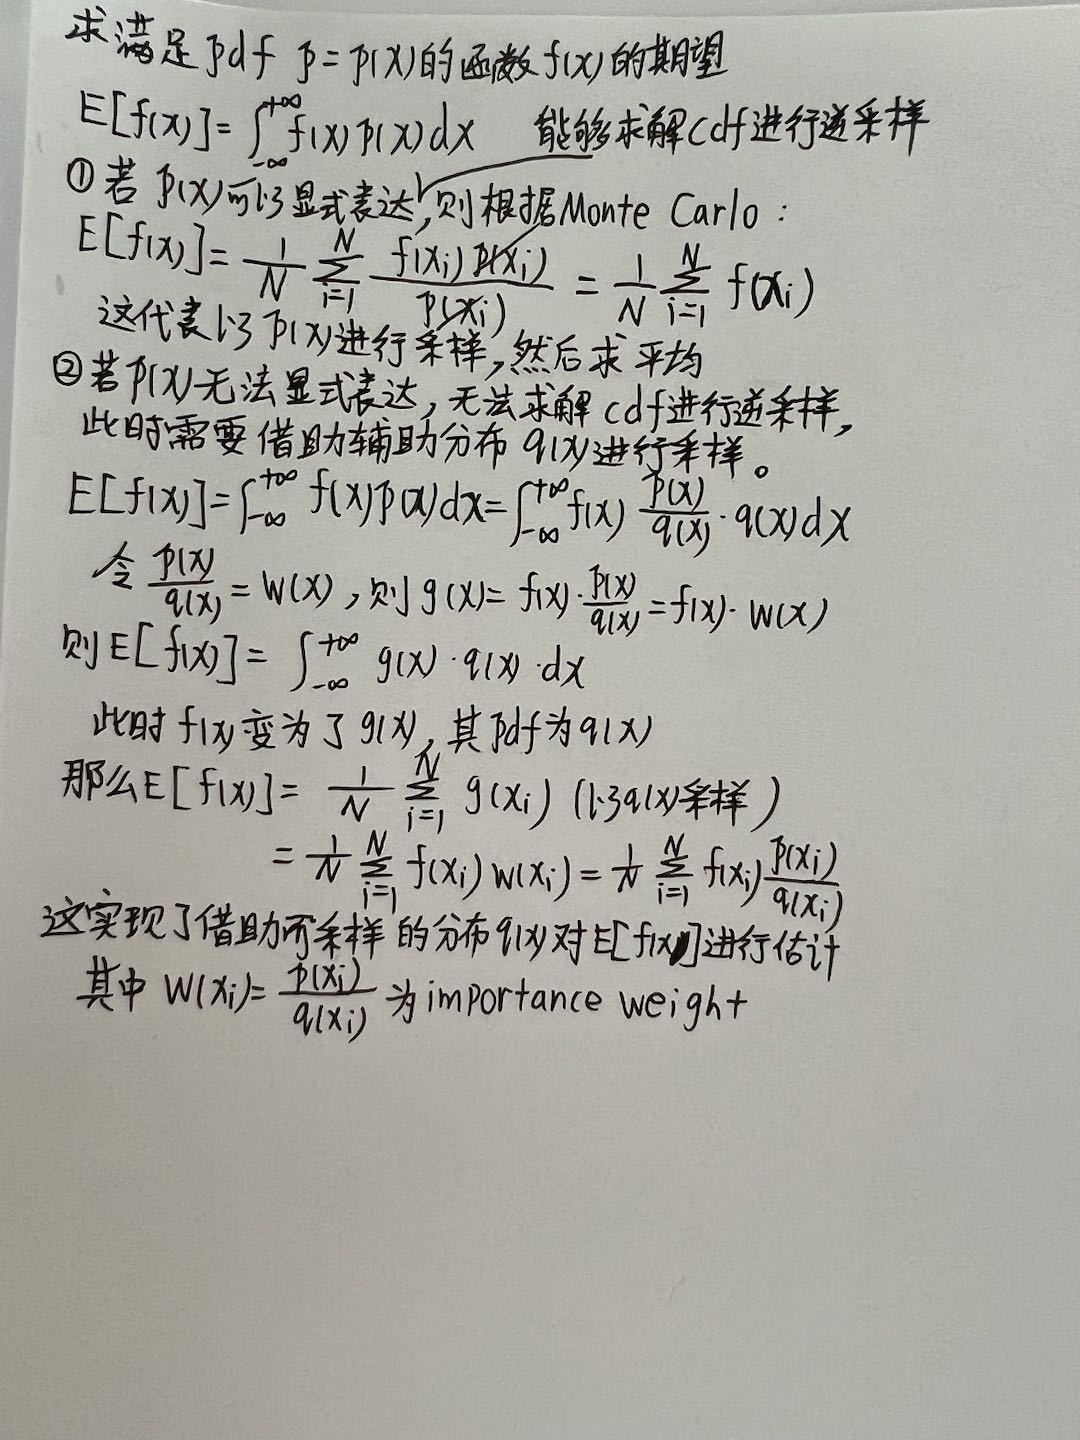 求满足pdf p=p(x)的函数f(x)的期望
E[f(x)]=∫_{-∞}^{+∞} f(x)p(x)dx 能够求解cdf进行逆采样
①若p(x)可以显式表达,则根据Monte Carlo:
E[f(x)]= 1/N Σ_{i=1}^{N} f(x_i)p(x_i)/p(x_i) = 1/N Σ_{i=1}^{N} f(x_i)
这代表以p(x)进行采样,然后求平均
②若p(x)无法显式表达,无法求解cdf进行逆采样,
此时需要借助辅助分布q(x)进行采样。
E[f(x)]=∫_{-∞}^{+∞} f(x)p(x)dx=∫_{-∞}^{+∞} f(x) p(x)/q(x)·q(x)dx
令 p(x)/q(x)=w(x),则g(x)=f(x)·p(x)/q(x)=f(x)·w(x)
则E[f(x)]=∫_{-∞}^{+∞} g(x)·q(x)·dx
此时f(x)变为了g(x),其pdf为q(x)
那么E[f(x)]= 1/N Σ_{i=1}^{N} g(x_i) (以q(x)采样)
= 1/N Σ_{i=1}^{N} f(x_i)w(x_i)= 1/N Σ_{i=1}^{N} f(x_i) p(x_i)/q(x_i)
这实现了借助可采样的分布q(x)对E[f(x)]进行估计
其中w(x_i)= p(x_i)/q(x_i) 为importance weight